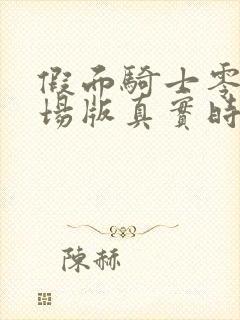 假而騎士零
場版真實時
陳赫